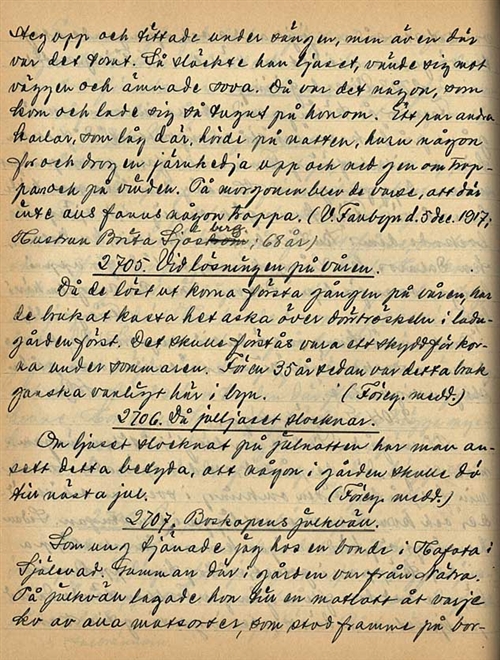 steg upp och tittade under sängen, men även där
var det tomt. Så släckte han ljuset, vände sig mot
väggen och ämnade sova. Då var det någon, som
kom och lade sig så tungt på honom. Ett par andra
karlar, som låg där, hörde på natten, huru någon
for och drog en järnkedja upp och ned genom trap-
pan och på vinden. På morgonen blev de varse, att där
inte alls fanns någon trappa. (V. Fanbyn d. 5 dec. 1917;
Hustrun Brita Sjöberg, 68 år)
2705. Vid lösningen på våren.
Då de löst ut korna första gången på våren, har
de brukat kasta het aska över dörtröskeln i ladu-
gården först. Det skulle förstås vara ett skydd för kor-
na under sommaren. För en 35 år sedan var detta bruk
ganska vanligt här i byn. (Föreg. medd.)
2706. Då julljuset slocknar.
Om ljuset slocknat på julnatten har man an-
sett detta betyda, att någon i gården skulle dö
till nästa jul. (Föreg. medd.)
2707. Boskapens julkväll.
Som ung tjänade jag hos en bonde i Hafsta i
Själevad. Gumman där i gården var från Nätra.
På julkväll lagade hon till en matlott åt varje
ko av alla matsorter, som stod framme på bor-